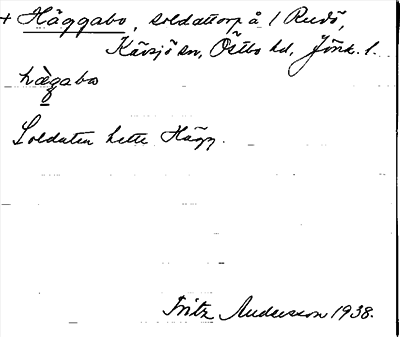 + Häggabo, soldattorp å 1 Rudö,
Kävsjö sn, Östbo hd, Jönk. l.
hàgabo
Soldaten hette Hägg.
Fritz Andersson 1938.